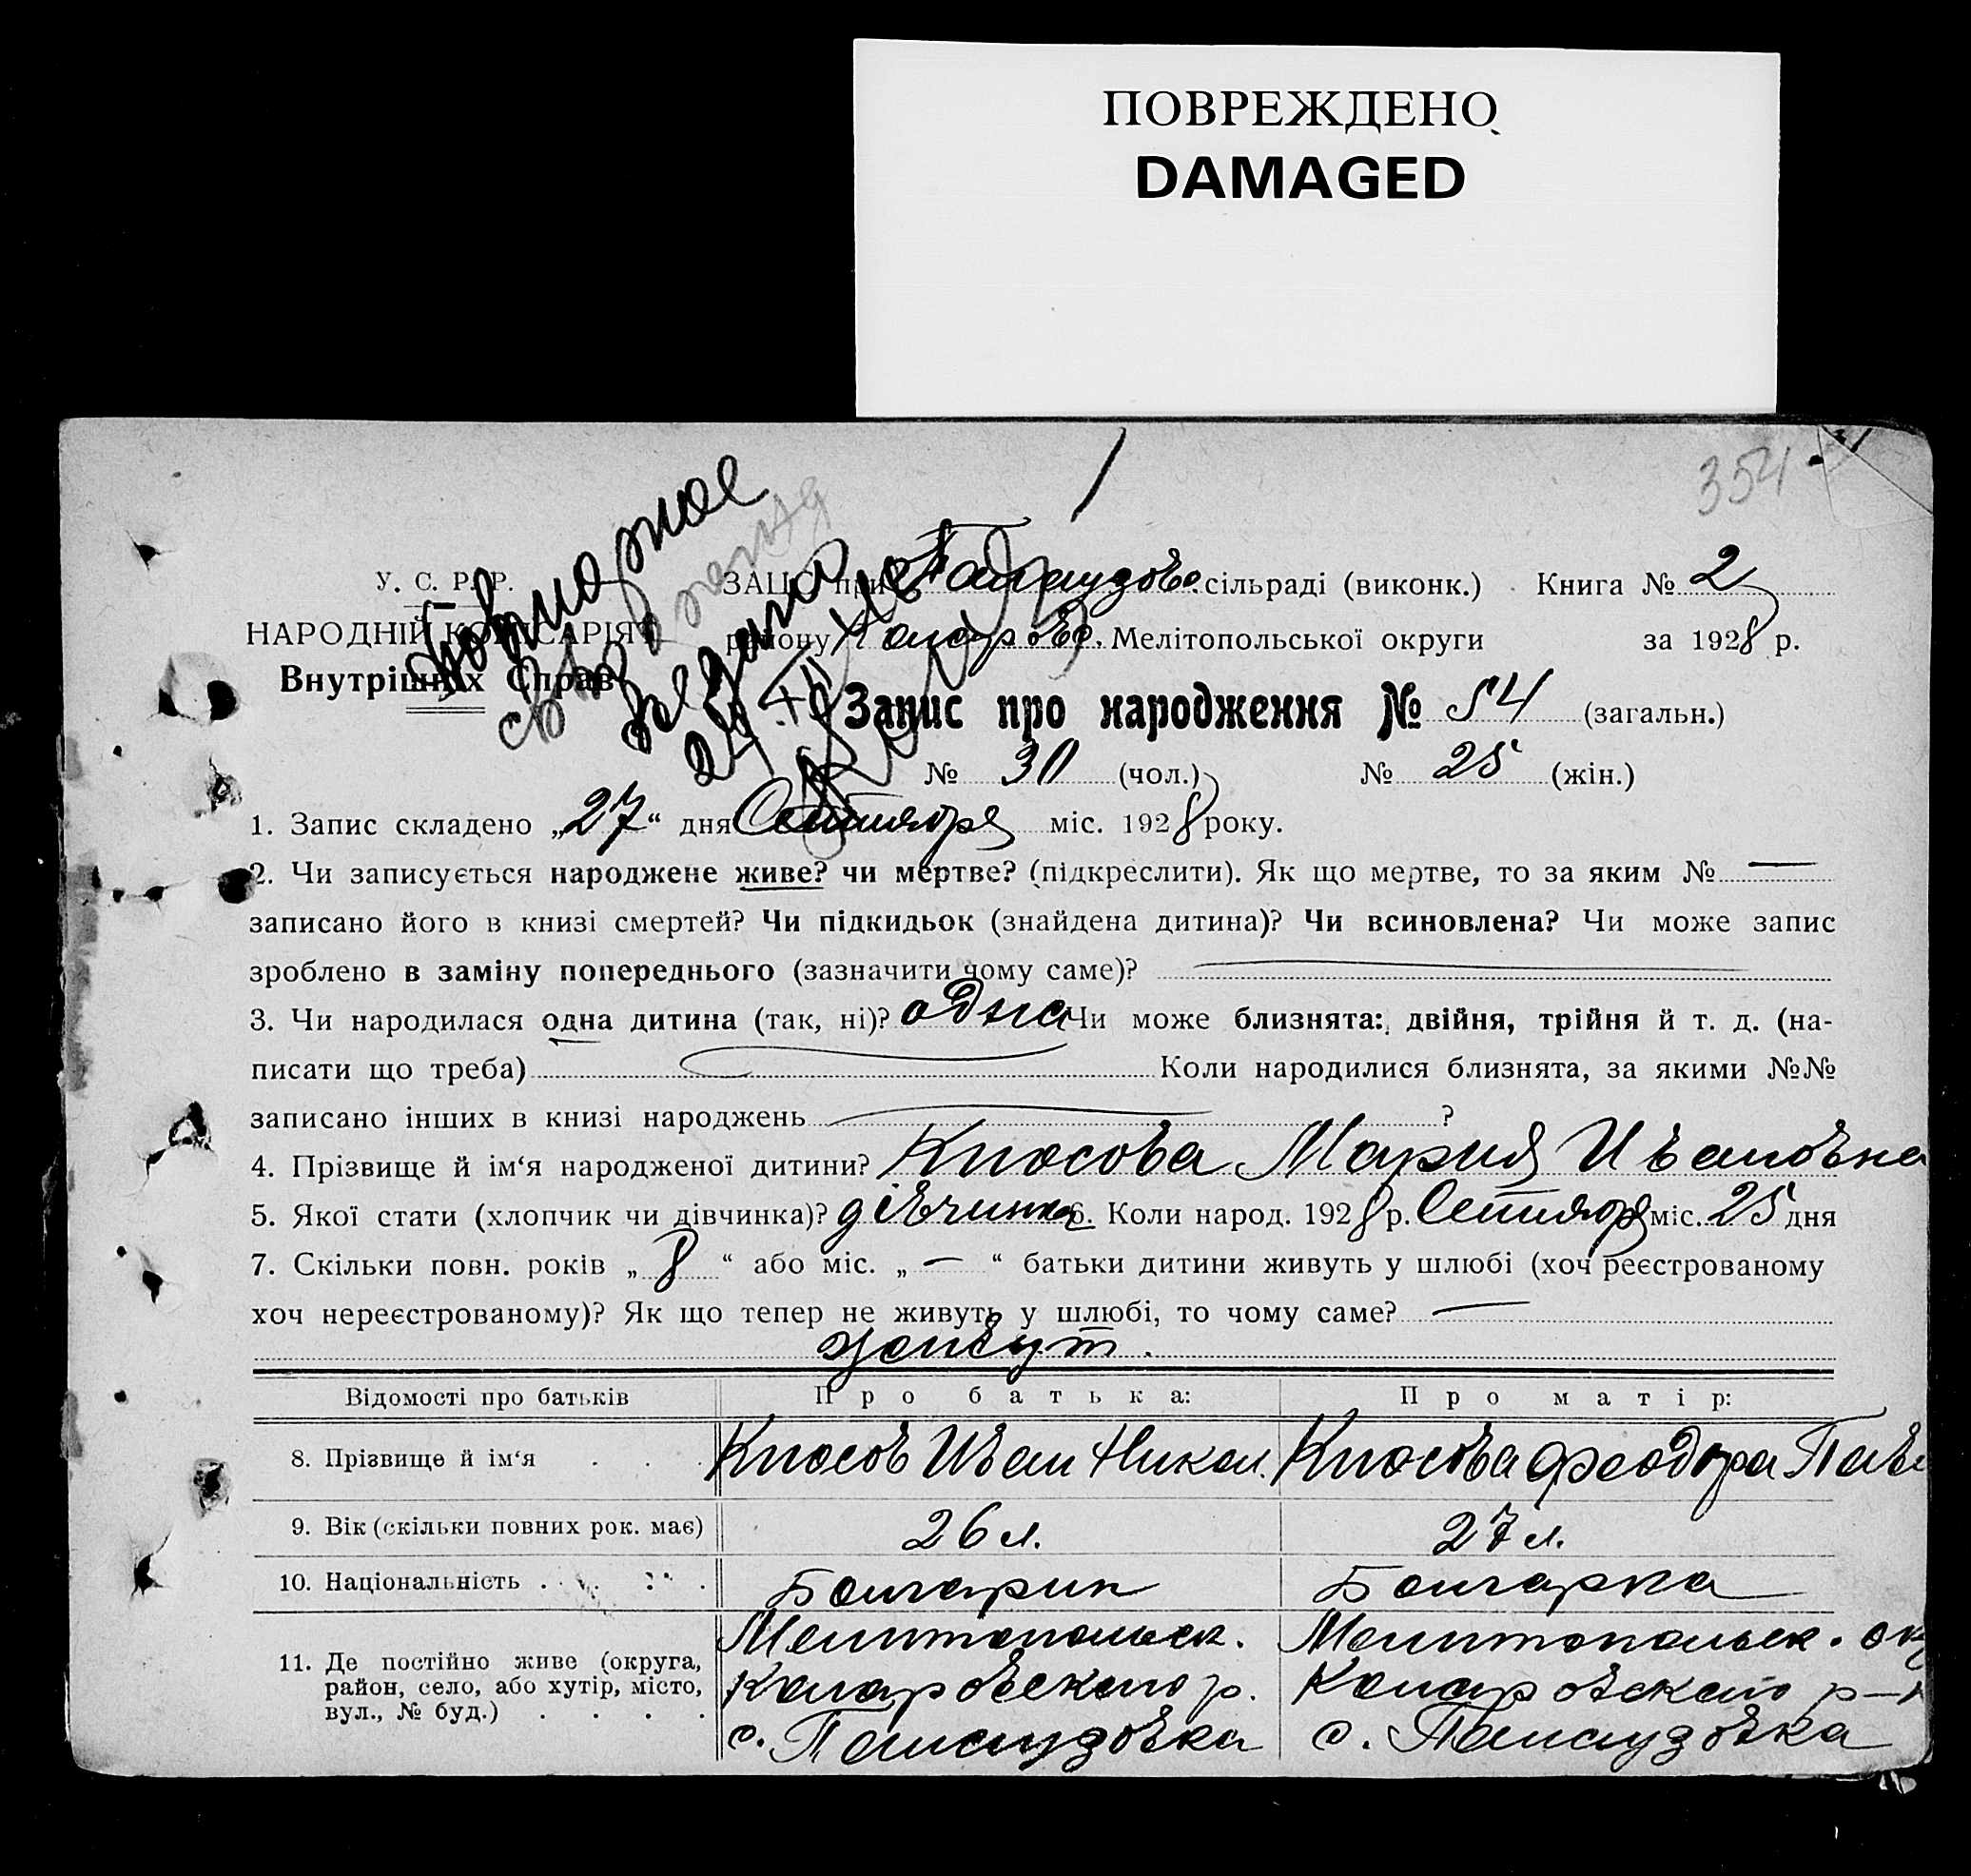 ПОВРЕЖДЕНО
DAMAGED
354
У. С. Р. Р.
НАРОДНІЙ КОМІСАРІЯТ
Внутрішніх Справ
Повторное
выдано
ЗАЦС при сільраді (виконк.) Книга № 2
району Мелітопольської округи за 1928 р.
Запис про народження № 54 (загальн.)
№ 30 (чол.) № 25 (жін.)
1. Запис складено „27“ дня Сентября міс. 1928 року.
2. Чи записується народжене живе? чи мертве? (підкреслити). Як що мертве, то за яким № —
записано його в книзі смертей? Чи підкидьок (знайдена дитина)? Чи всиновлена? Чи може запис
зроблено в заміну попереднього (зазначити чому саме)?
3. Чи народилася одна дитина (так, ні)? одна Чи може близнята: двійня, трійня й т. д. (на-
писати що треба) Коли народилися близнята, за якими №№
записано інших в книзі народжень ?
4. Прізвище й ім‘я народженої дитини? Кюсова Мария Ивановна
5. Якої стати (хлопчик чи дівчинка)? дівчинка 6. Коли народ. 1928 р. Сентября міс. 25 дня
7. Скільки повн. років „8“ або міс. „—“ батьки дитини живуть у шлюбі (хоч реєстрованому
хоч нереєстрованому)? Як що тепер не живуть у шлюбі, то чому саме? —
живут.
Відомості про батьків Про батька: Про матір:
8. Прізвище й ім‘я . . . Кюсов Иван Никол. Кюсова Феодора Павл
9. Вік (скільки повних рок. має) 26 л. 27 л.
10. Національність . . . . Болгарин Болгарка
11. Де постійно живе (округа, район, село, або хутір, місто, вул., № буд.) . . . .
Мелитопольск. Мелитопольск. окр
Коларовского р. Коларовского р-н
с. Палаузовка с. Палаузовка